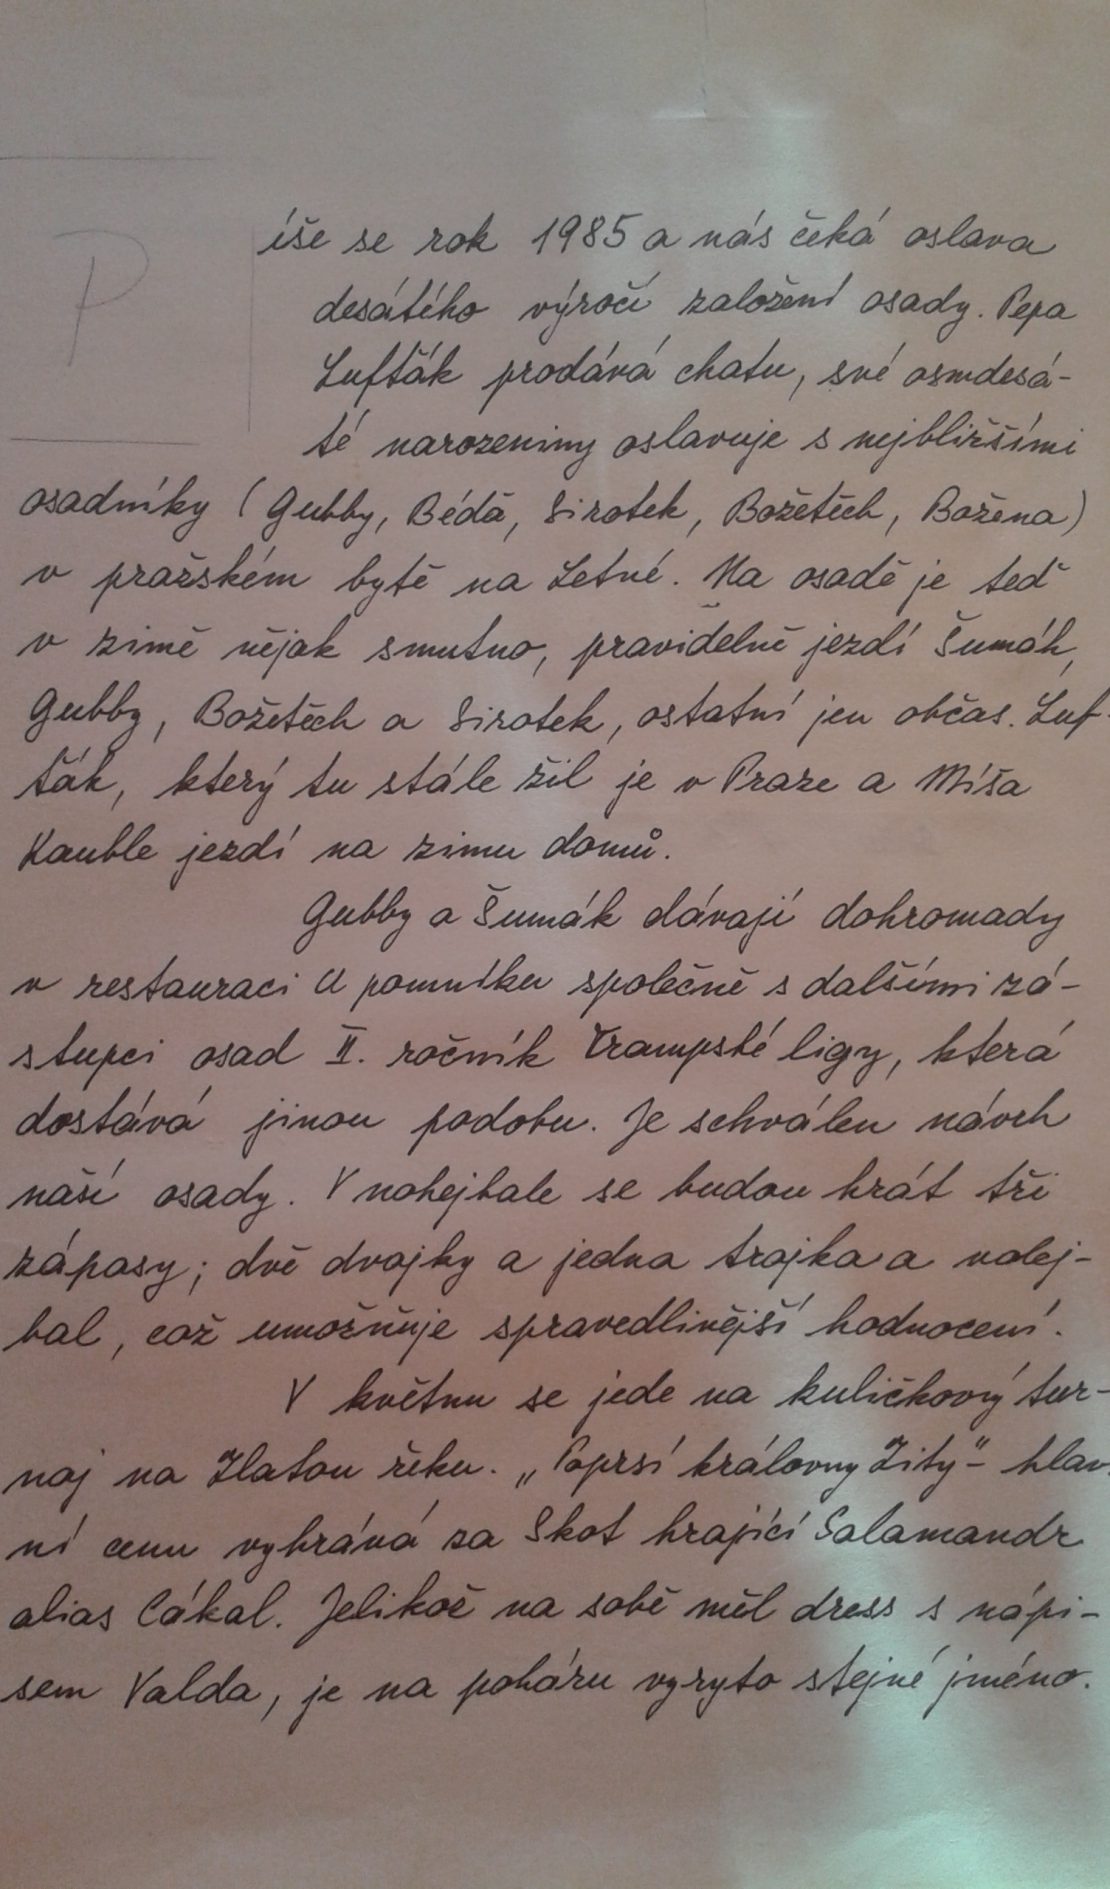 Píše se rok 1985 a nás čeká oslava
desátého výročí založení osady. Pepa
Lufťák prodává chatu, své osmdesá-
té narozeniny oslavuje s nejbližšími
osadníky (Gubby, Béďa, Sirotek, Božetěch, Božena)
v pražském bytě na Letné. Na osadě je teď
v zimě nějak smutno, pravidelně jezdí Šumák,
Gubby, Božetěch a Sirotek, ostatní jen občas. Luf-
ťák, který tu stále žil je v Praze a Míša
Kauble jezdí na zimu domů.
Gubby a Šumák dávají dohromady
v restauraci U pomníku společně s dalšími zá-
stupci osad II. ročník Trampské ligy, která
dostává jinou podobu. Je schválen návrh
naší osady. V nohejbale se budou hrát tři
zápasy; dvě dvojky a jedna trojka a volej-
bal, což umožňuje spravedlivější hodnocení.
V květnu se jede na kuličkový tur-
naj na Zlatou řeku. „Poprsí královny Zity" - hlav-
ní cenu vyhrává za Skot hrající Salamandr
alias Cákal. Jelikož na sobě měl dress s nápi-
sem Valda, je na poháru vyryto stejné jméno.